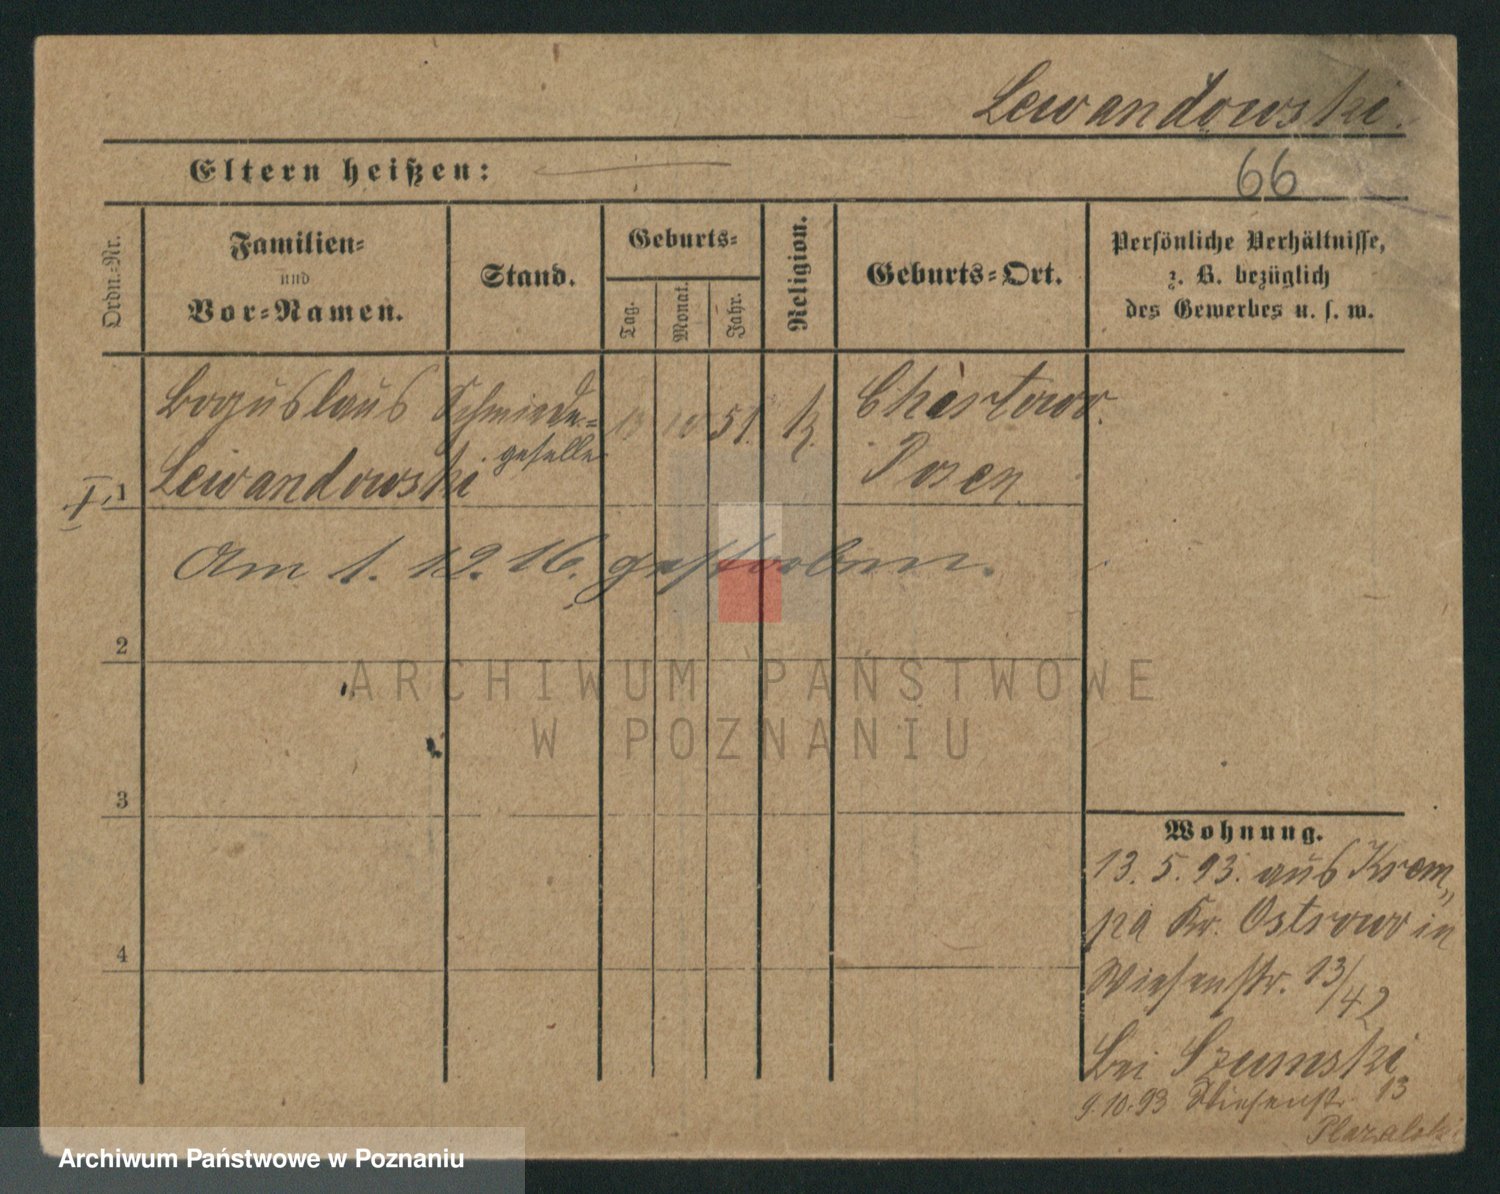 Lewandowski.
Eltern heißen:
66
Ordn.-Nr.
Familien-
und
Vor-Namen.
Stand.
Geburts-
Tag.
Monat.
Jahr.
Religion.
Geburts-Ort.
Persönliche Verhältnisse,
z. B. bezüglich
des Gewerbes u. s. w.
Boguslaus Schmiede-
geselle 13 10 51. k. Chartowo.
I. 1 Lewandowski Posen
Am 1. 12. 16. gestorben.
2
ARCHIWUM PAŃSTWOWE
W POZNANIU
3
Wohnung.
13. 5. 93. aus Krom„
pa Kr. Ostrowo in
4
Wiesenstr. 13/42
bei Szumski
9.10.93 Wiesenstr. 13
Archiwum Państwowe w Poznaniu